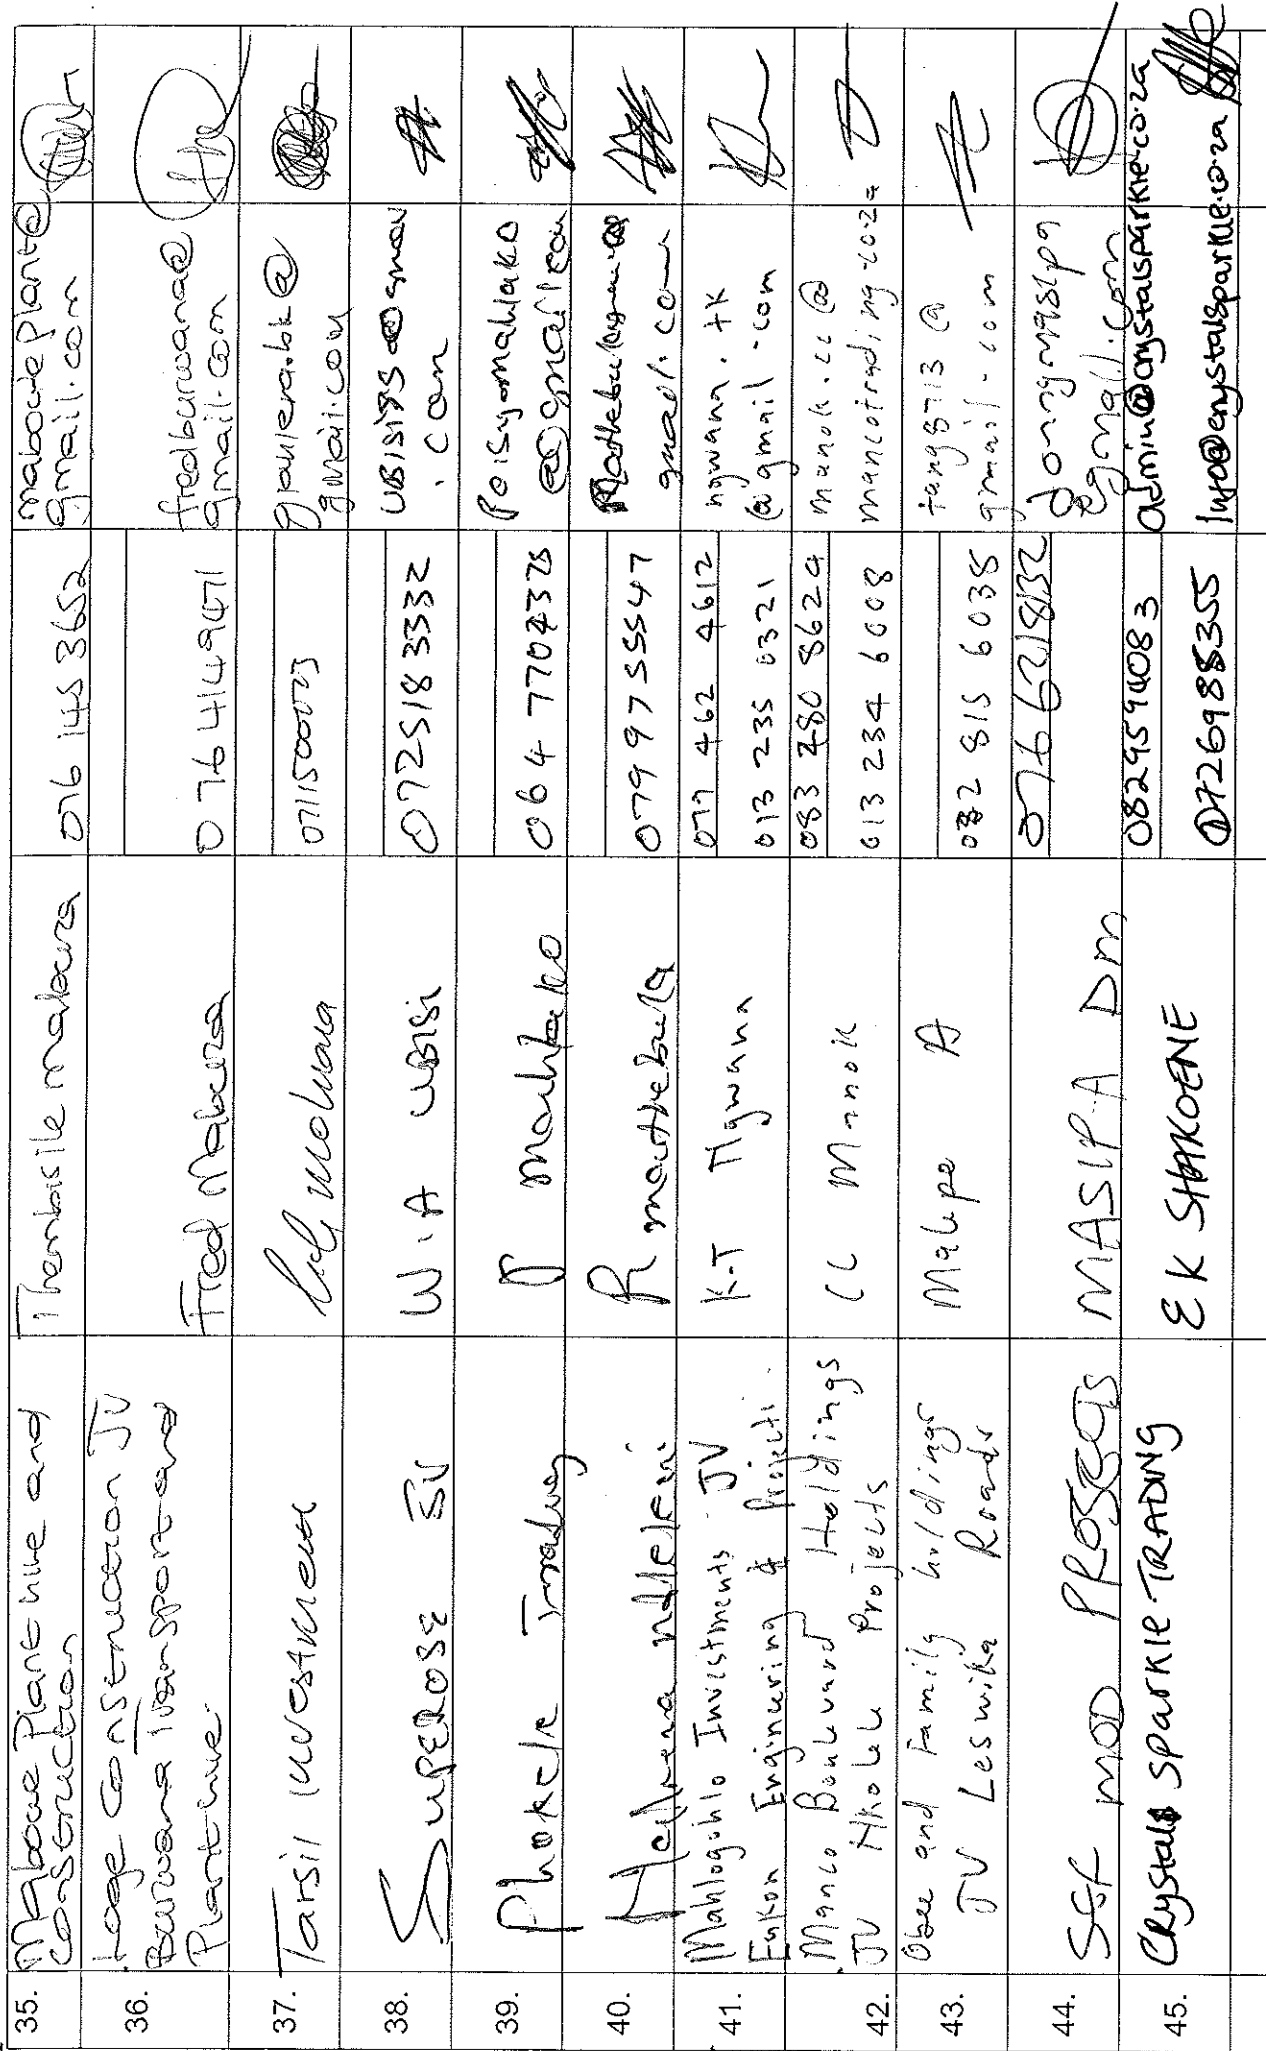 35. Mabowe Plant hire and Construction
Thembisile Mabuza
076 145 3652
maboweplant@
gmail.com
36. Construction JV
Buriwana Transport and
Plant hire
Fred Mabuza
076 4149471
fredburiwana@
gmail.com
37. Tarsil Investment
0711500023
gmail.com
38. SUPEROSE JV
W.A UBISI
0725183332
.com
39. Phokele Trading
P
@gmail.com
40.
R
0799755547
gmail.com
41. Mahlogohlo Investments JV
Enkon Engineering & Projects.
K.T Ngwana
079 462 4612
013 235 0321
ngwana.tk
@gmail.com
42. Manco Boulevard Holdings
JV Hkolele Projects
CC Manok
083 280 8624
013 234 6008
manok.cc@
mancotrading.co.za
43. Obee and Family holdings
JV Leswika Roads
Malepe A
082 815 6035
tang8713@
gmail.com
44. SSF MOD PROJECTS
MASIPA DM
076 6218132
@gmail.com
45. Crystals SPARKIE TRADING
E K SHAKOENE
0829594083
0726988355
admin@crystalsparkie.co.za
Info@crystalsparkle.co.za